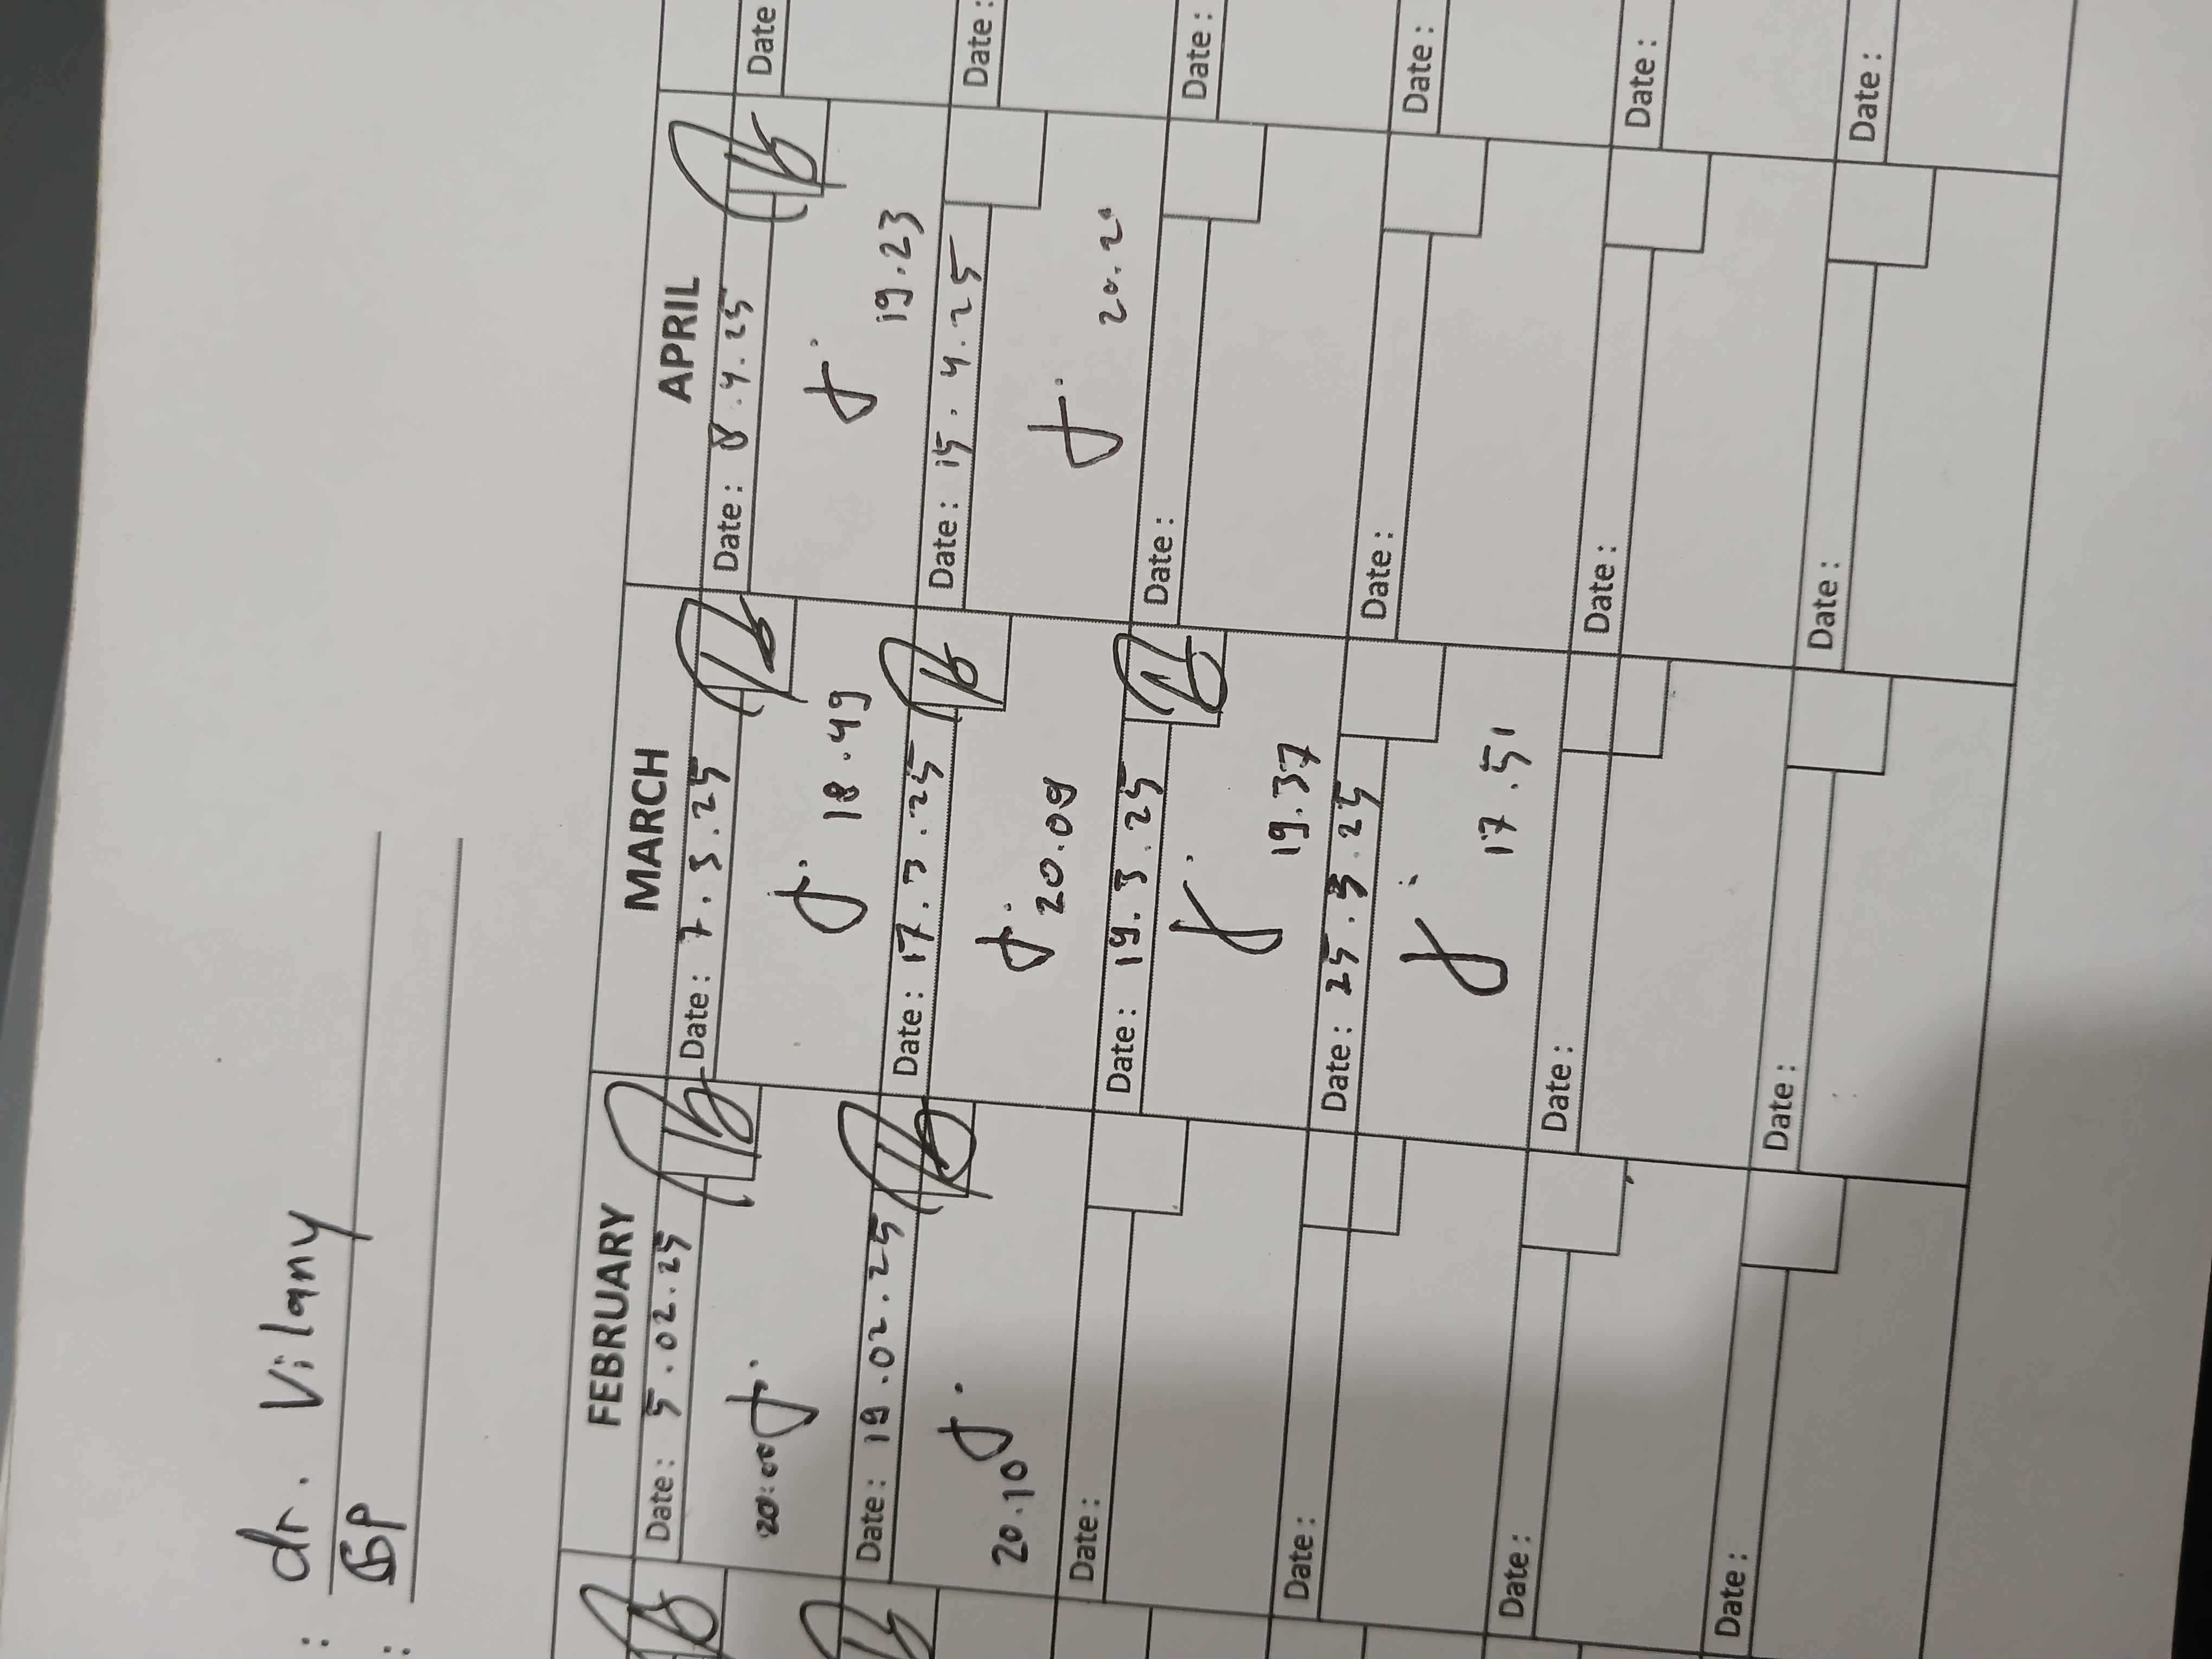 : dr. Vilany
: GP
FEBRUARY MARCH APRIL
Date: 5.02.25 Date: 7.3.25 Date: 8.4.25 Date
20:00 18.49 19.23
Date: 19.02.25 Date: 17.3.25 Date: 15.4.25 Date:
20.10 20.09 20.20
Date: Date: 19.3.25 Date: Date:
19.37
Date: Date: 25.3.25 Date: Date:
17.51
Date: Date: Date: Date:
Date: Date: Date: Date: